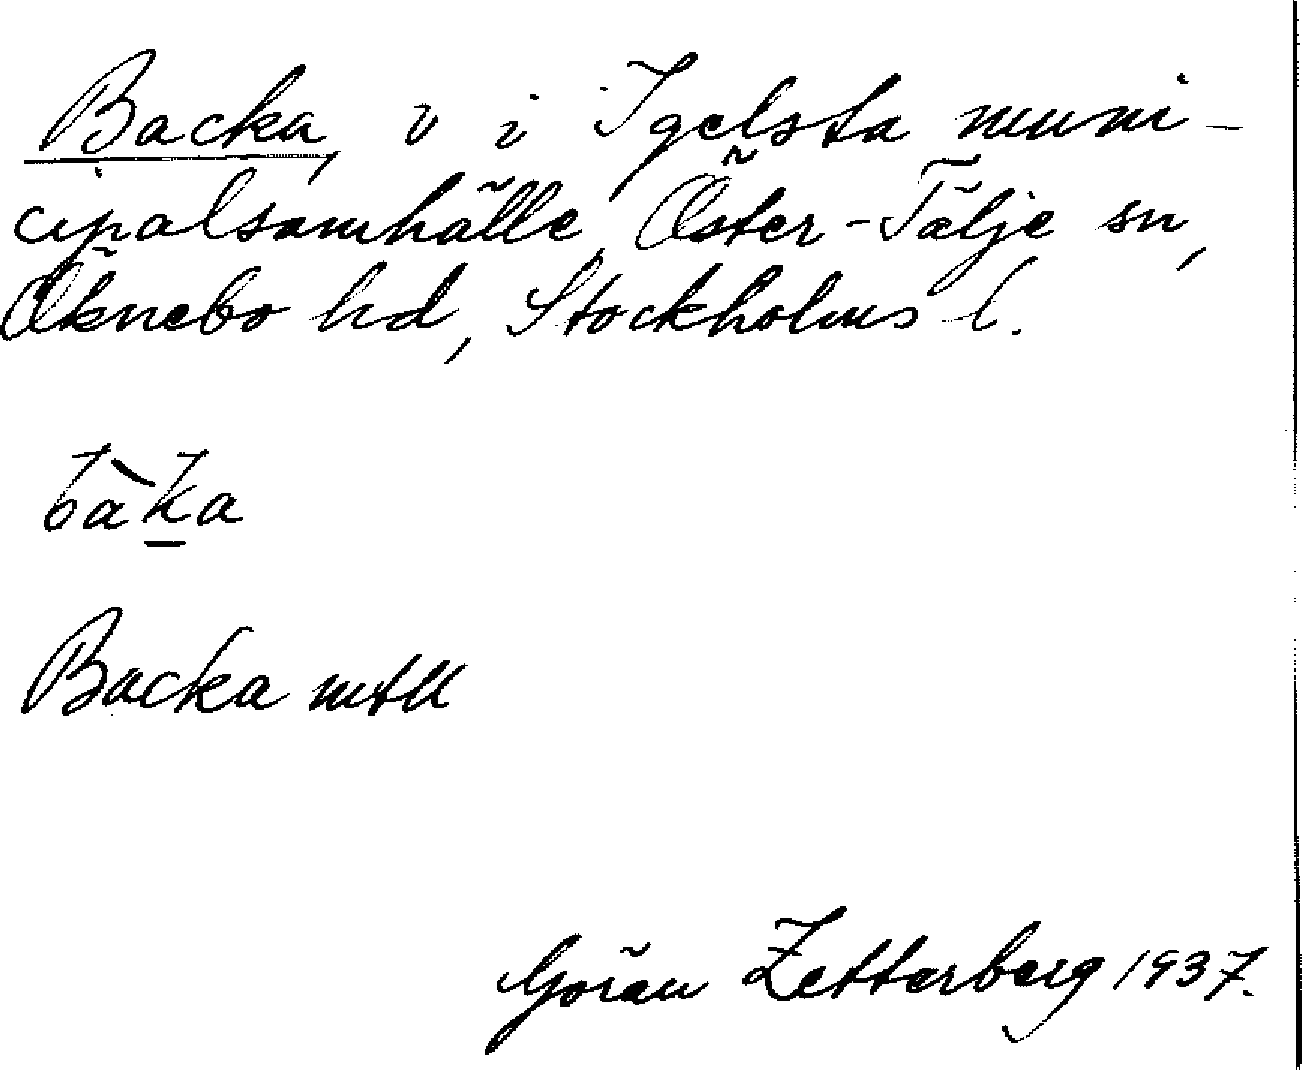 Backa, v i Igelsta muni-
cipalsamhälle, Öster-Tälje sn,
Öknebo hd, Stockholms l.
bàk̲a
Backa mtll
Göran Zetterberg 1937.